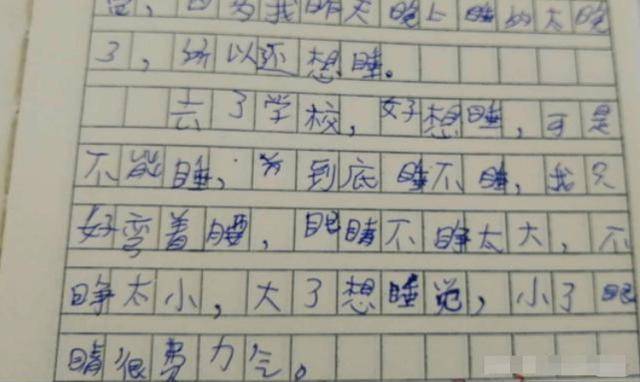 觉，因为我昨天晚上睡的太晚
了，所以还想睡。
去了学校，好想睡，可是
不能睡，到底睡不睡，我只
好弯着腰，眼睛不睁太大，不
睁太小，大了想睡觉，小了眼
睛很费力气。